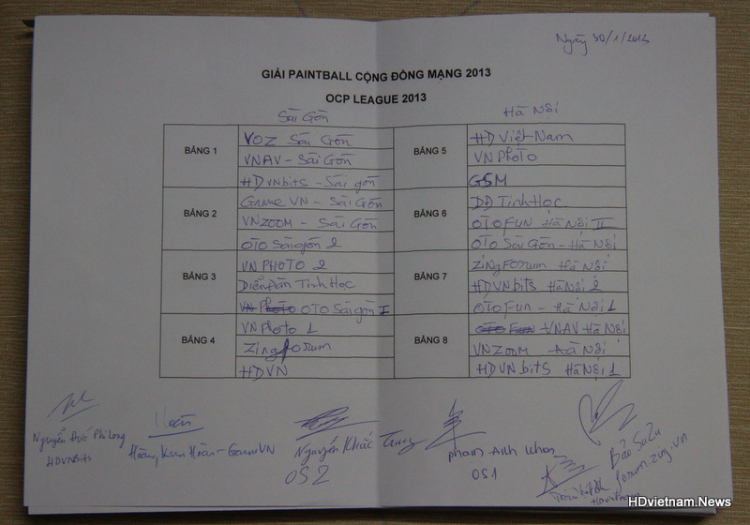 Ngày 30/1/2013
GIẢI PAINTBALL CỘNG ĐỒNG MẠNG 2013
OCP LEAGUE 2013
Sài Gòn
Hà Nội
BẢNG 1
VOZ Sài Gòn
VNAV - Sài Gòn
HDvnbits - Sài gòn
BẢNG 2
Game VN - Sài Gòn
VNZOOM - Sài Gòn
OTO Sàigòn 2
BẢNG 3
VN PHOTO 2
Diễn Đàn Tinh Học
VN Photo OTO Sài gòn I
BẢNG 4
VN Photo 1
Zing forum
HDVN
BẢNG 5
HD Việt Nam
VN Photo
GSM
BẢNG 6
DĐ Tinh Học
OTOFUN Hà Nội II
OTO Sài Gòn - Hà Nội
BẢNG 7
Zing Forum Hà Nội
HDVNbits Hà Nội 2
OTOFun - Hà Nội 1
BẢNG 8
OTO Fun VNAV Hà Nội
VNZoom Hà Nội
HDVNbits Hà Nội 1
Nguyễn Đức Phi Long
HDVNBits
Hoàng Kim Hoàn - GameVN
Nguyễn Khắc Trung
OS2
Phạm Anh Khoa
OS1
Bảo SuZu
forum.zing.vn
HDvietnam.News